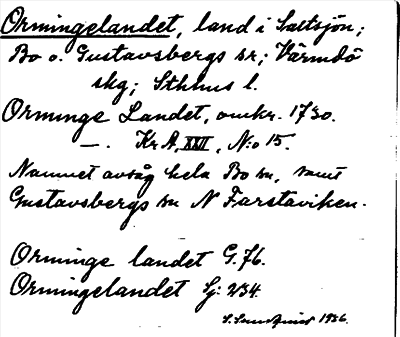 Ormingelandet, land i Saltsjön;
Bo o. Gustavsbergs sr; Värmdö
skg; Sthlms l.
Orminge Landet, omkr. 1730.
—. KrA, XXVI, N:o 15.
Namnet avsåg hela Bo sn, samt
Gustavsbergs sn N Farstaviken.
Orminge landet G. 76.
Ormingelandet Sj: 234.
1936.